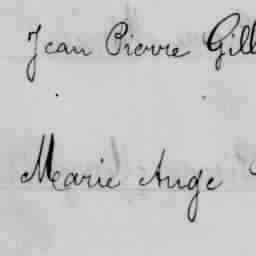 Jean Pierre Gill
Marie Ange